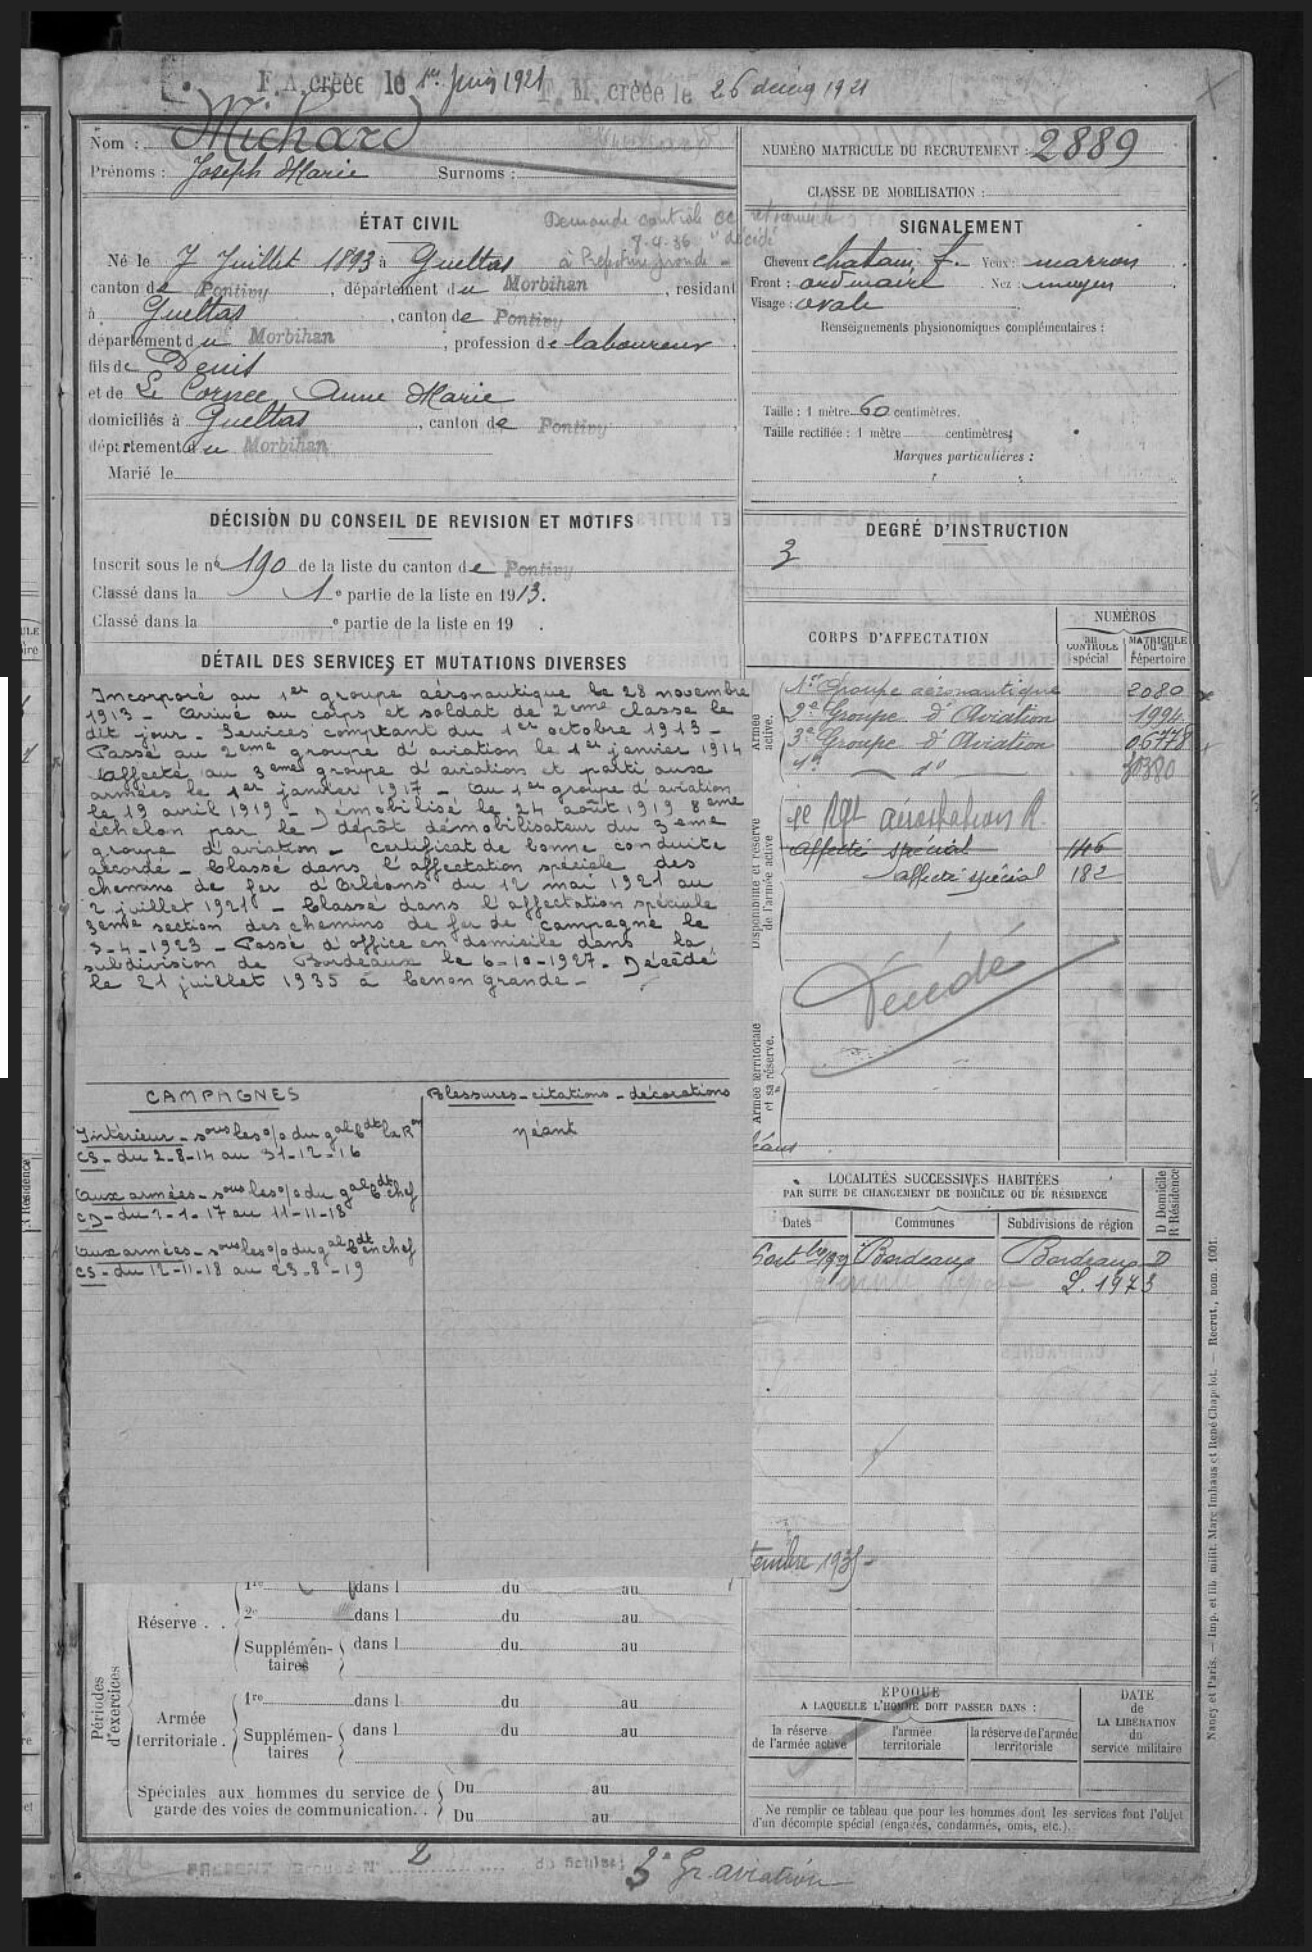 F.A. créée le 1er Juin 1921 F.M. créée le 26 1921
Nom : Michard
Prénoms : Joseph Marie Surnoms :
NUMÉRO MATRICULE DU RECRUTEMENT : 2889
CLASSE DE MOBILISATION :
ÉTAT CIVIL
Demande contrôle
7-4-36 décédé
Né le 7 Juillet 1893 à Gueltas
canton de Pontivy, département du Morbihan, résidant
à Gueltas, canton de Pontivy
département du Morbihan, profession de laboureur,
fils de Denis
et de Le Cornec Anne Marie
domiciliés à Gueltas, canton de Pontivy,
département du Morbihan
Marié le
SIGNALEMENT
Cheveux chatain f. Yeux : marron
Front : ordinaire Nez : moyen
Visage : ovale
Renseignements physionomiques complémentaires :
Taille : 1 mètre 60 centimètres.
Taille rectifiée : 1 mètre centimètres;
Marques particulières :
DÉCISION DU CONSEIL DE REVISION ET MOTIFS
Inscrit sous le no 190 de la liste du canton de Pontivy
Classé dans la 1e partie de la liste en 1913.
Classé dans la e partie de la liste en 19 .
DEGRÉ D'INSTRUCTION
3
DÉTAIL DES SERVICES ET MUTATIONS DIVERSES
Incorporé au 1er groupe aéronautique le 28 novembre
1913 - Arrivé au corps et soldat de 2ème classe le
dit jour. Services comptant du 1er octobre 1913 -
Passé au 2ème groupe d'aviation le 1er janvier 1914
Affecté au 3ème groupe d'aviation et parti aux
armées le 1er janvier 1917 - Au 1er groupe d'aviation
le 19 avril 1919 - Démobilisé le 24 août 1919 8ème
échelon par le dépôt démobilisateur du 3ème
groupe d'aviation - Certificat de bonne conduite
accordé - Classé dans l'affectation spéciale des
chemins de fer d'Orléans du 12 mai 1921 au
2 juillet 1921 - Classé dans l'affectation spéciale
3ème section des chemins de fer de campagne le
5-4-1923 - Passé d'office en domicile dans la
subdivision de Bordeaux le 6-10-1927. Décédé
le 21 juillet 1935 à Cenon Gironde -
CAMPAGNES
Intérieur - sous les o/o du gal Cdt la Ron
CS - du 2-8-14 au 31-12-16
Aux armées - sous les o/o du gal Cdt chef
CD - du 1-1-17 au 11-11-18
Aux armées - sous les o/o du gal Cdt en chef
CS - du 12-11-18 au 23-8-19
Blessures - citations - décorations
Néant
CORPS D'AFFECTATION
NUMÉROS
au CONTROLE spécial
MATRICULE ou au répertoire
Armée active.
1er Groupe aéronautique 2080
2e Groupe d'Aviation 1994
3e Groupe d'Aviation 06778
1er do
Disponibilité et réserve de l'armée active
1e Rgt aérostation R.
Affecté spécial 146
affecté spécial 182
Décédé
Armée territoriale et sa réserve.
LOCALITÉS SUCCESSIVES HABITÉES
PAR SUITE DE CHANGEMENT DE DOMICILE OU DE RÉSIDENCE
Dates Communes Subdivisions de région
D Domicile
R Résidence
Bordeaux Bordeaux D
L. 1973
tembre 1935 -
Périodes d'exercices
Réserve . .
1re dans l du au
2e dans l du au
Supplémentaires dans l du au
Armée territoriale .
1re dans l du au
Supplémentaires dans l du au
Spéciales aux hommes du service de
garde des voies de communication. .
Du au
Du au
EPOQUE
A LAQUELLE L'HOMME DOIT PASSER DANS :
la réserve de l'armée active
l'armée territoriale
la réserve de l'armée territoriale
DATE
de
LA LIBÉRATION
du
service militaire
Ne remplir ce tableau que pour les hommes dont les services font l'objet
d'un décompte spécial (engagés, condamnés, omis, etc.).
Nancy et Paris. — Imp. et lib. milit. Marc Imhaus et René Chapelot. — Recrut., nom. 1001.
2
3e Gr. aviation